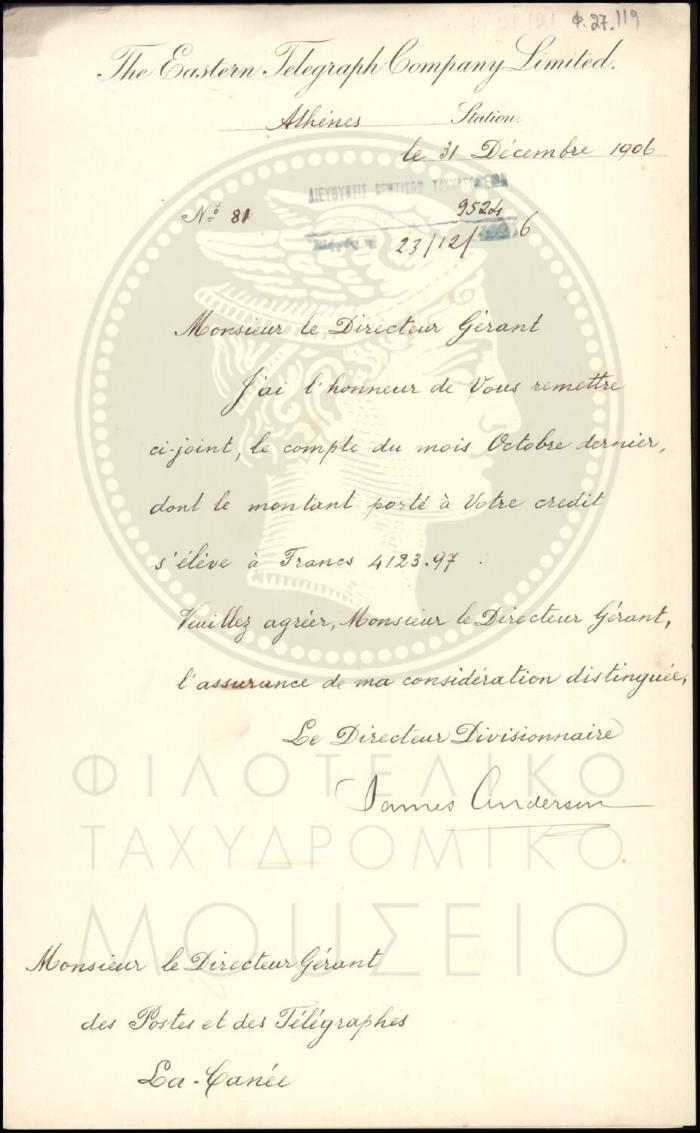 Φ.27.119
The Eastern Telegraph Company Limited.
Athènes Station.
le 31 Décembre 1906
ΔΙΕΥΘΥΝΣΙΣ ΤΑΧΥΔΡΟΜΕΙΩΝ
No 81 9524
23/12/ 6
Monsieur le Directeur Gérant
J'ai l'honneur de Vous remettre
ci-joint, le compte du mois Octobre dernier,
dont le montant porté à Votre credit
s'élève à Francs 4123.97.
Veuillez agréer, Monsieur le Directeur Gérant,
l'assurance de ma considération distinguée,
Le Directeur Divisionnaire
James Anderson
ΦΙΛΟΤΕΛΙΚΟ
ΤΑΧΥΔΡΟΜΙΚΟ
ΜΟΥΣΕΙΟ
Monsieur le Directeur Gérant
des Postes et des Télégraphes
La-Canée